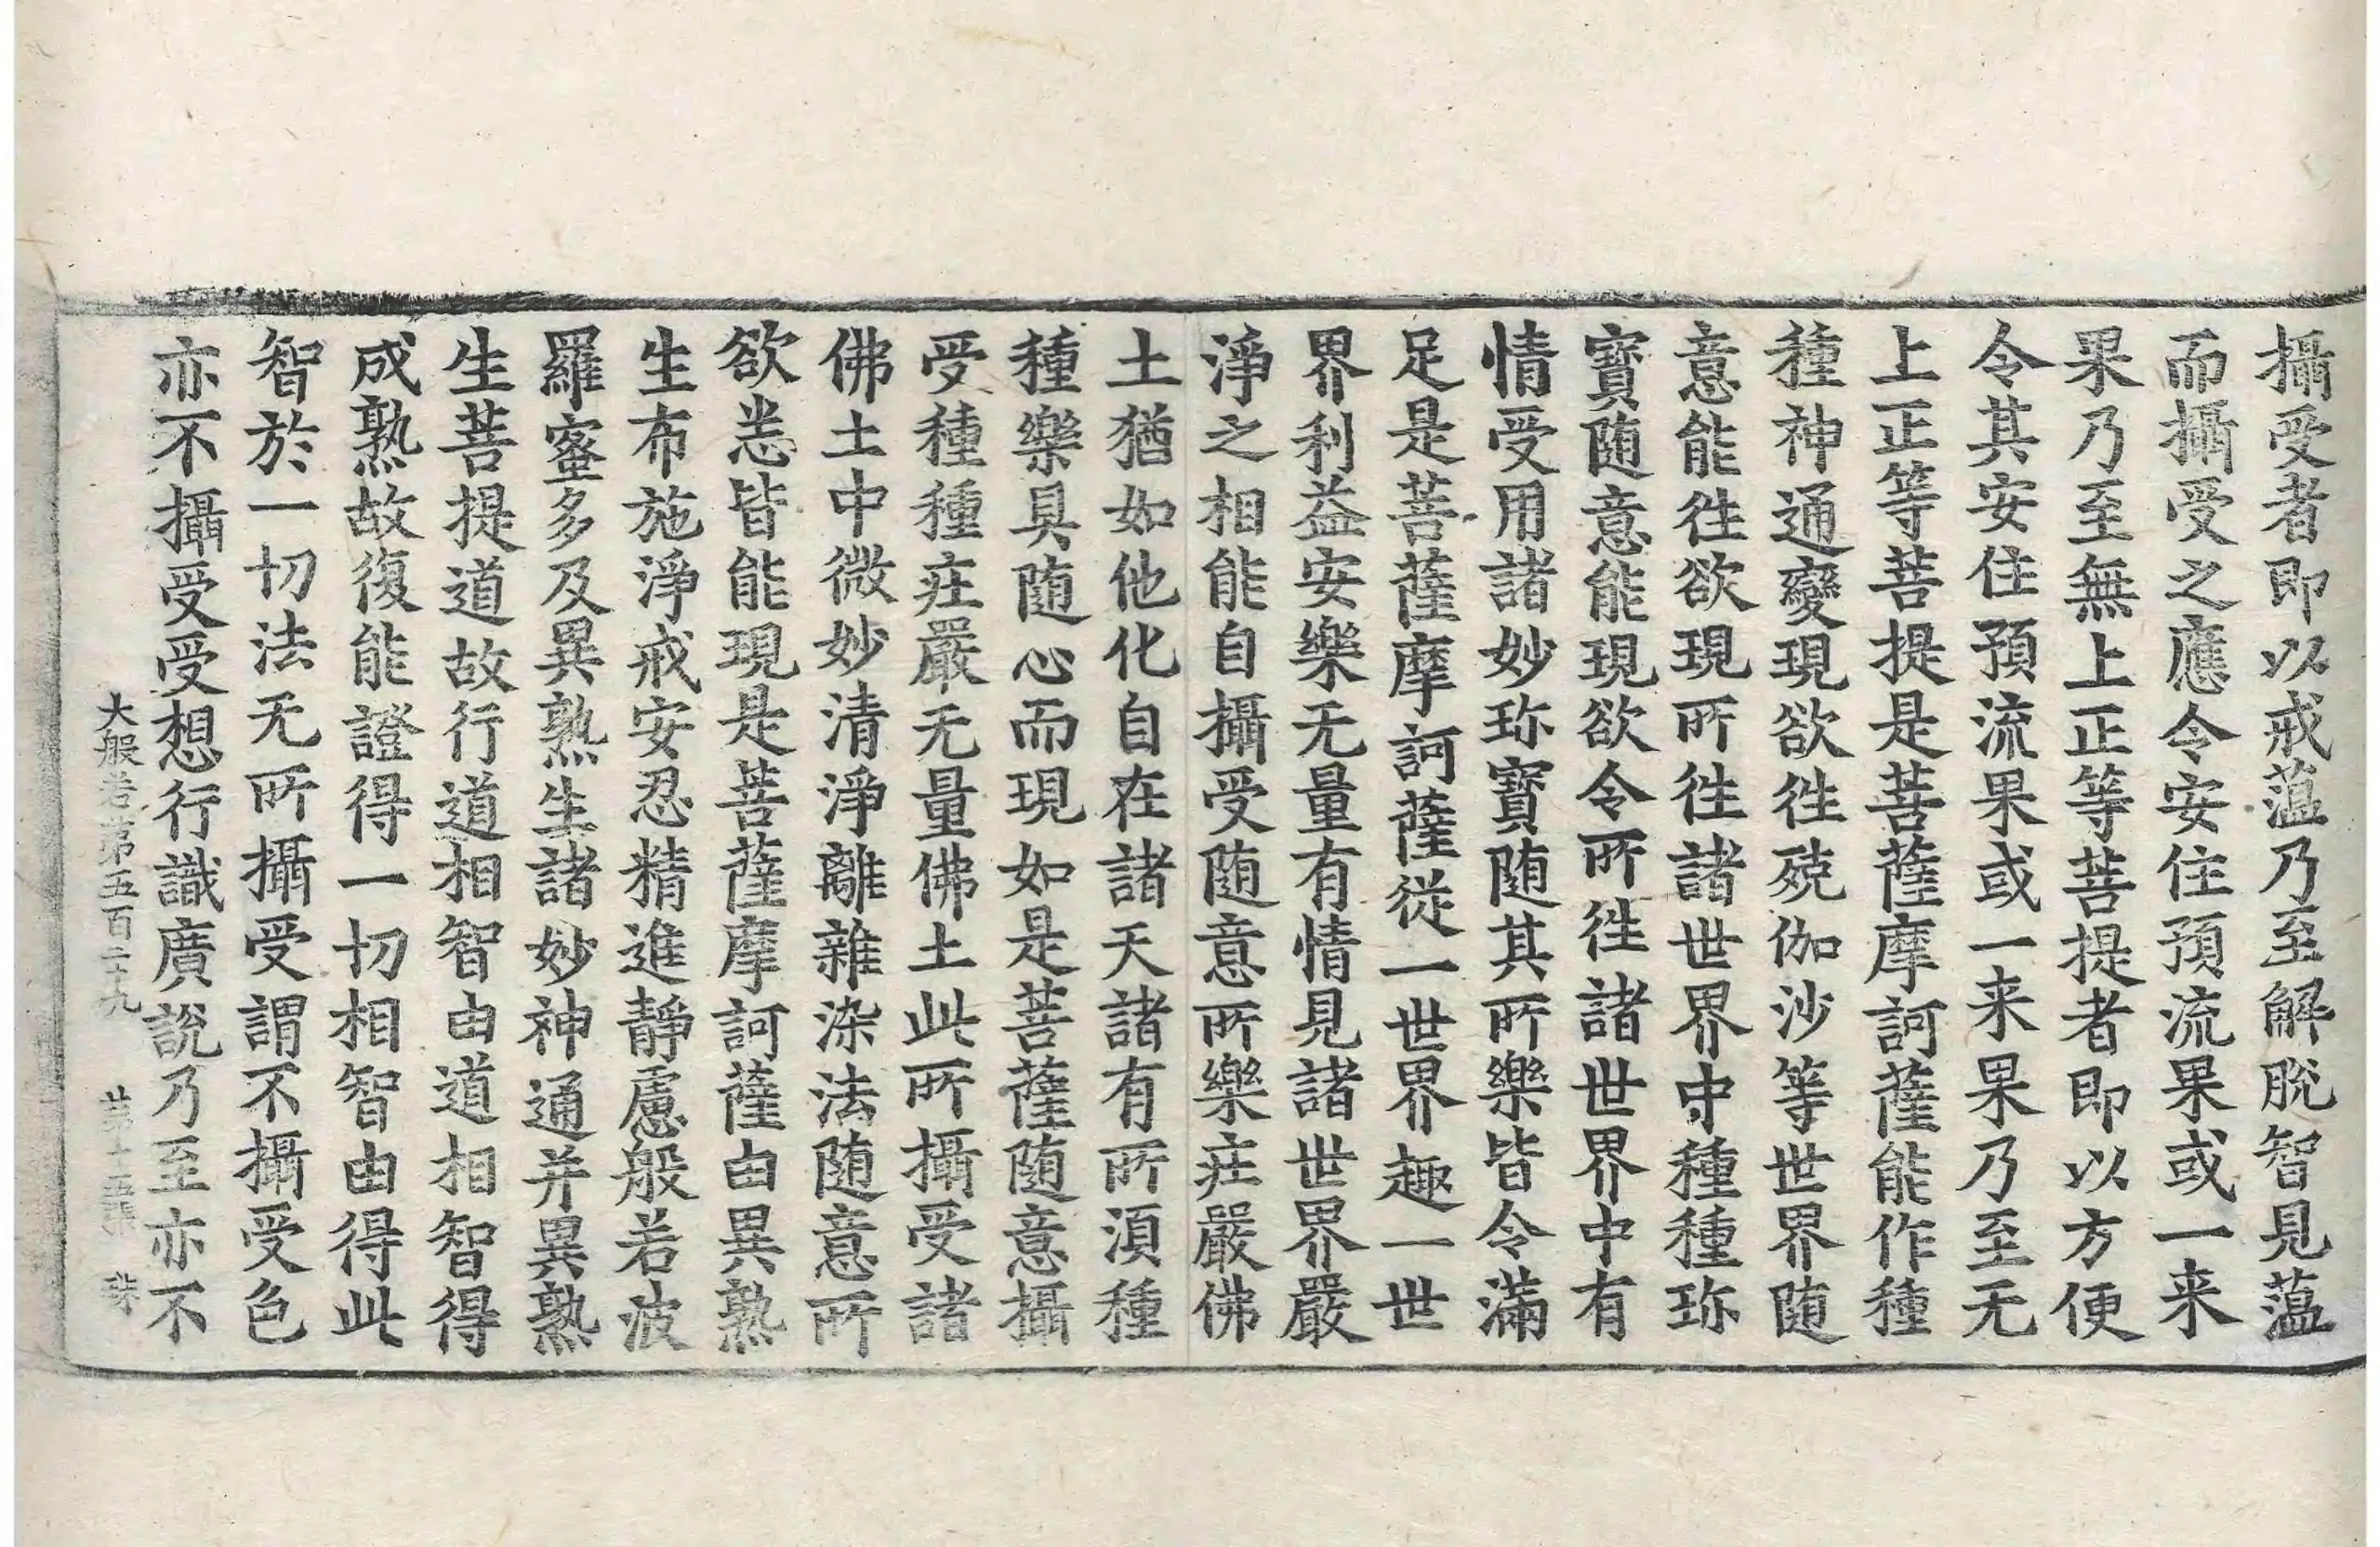 攝受者即以戒蕰乃至解脫智見蕰
而攝受之應令安住預流果或一来
果乃至無上正等菩提者即以方便
令其安住預流果或一来果乃至无
上正等菩提是菩薩摩訶薩能作種
種神通變現欲徃殑伽沙等世界随
意能徃欲現所徃諸世界中種種珎
寶随意能現欲令所徃諸世界中有
情受用諸妙珎寶随其所樂皆令滿
足是菩薩摩訶薩從一世界趣一世
界利益安樂无量有情見諸世界嚴
淨之相能自攝受随意所樂庄嚴佛
土猶如他化自在諸天諸有所湏種
種樂具随心而現如是菩薩随意攝
受種種庄嚴无量佛土此所攝受諸
佛土中微妙清淨離雜染法随意所
欲悉皆能現是菩薩摩訶薩由異熟
生布施淨戒安忍精進靜慮般若波
羅蜜多及異熟生諸妙神通并異熟
生菩提道故行道相智由道相智得
成熟故復能證得一切相智由得此
智於一切法无所攝受謂不攝受色
亦不攝受受想行識廣說乃至亦不
大般若第五百二十九 第十五張